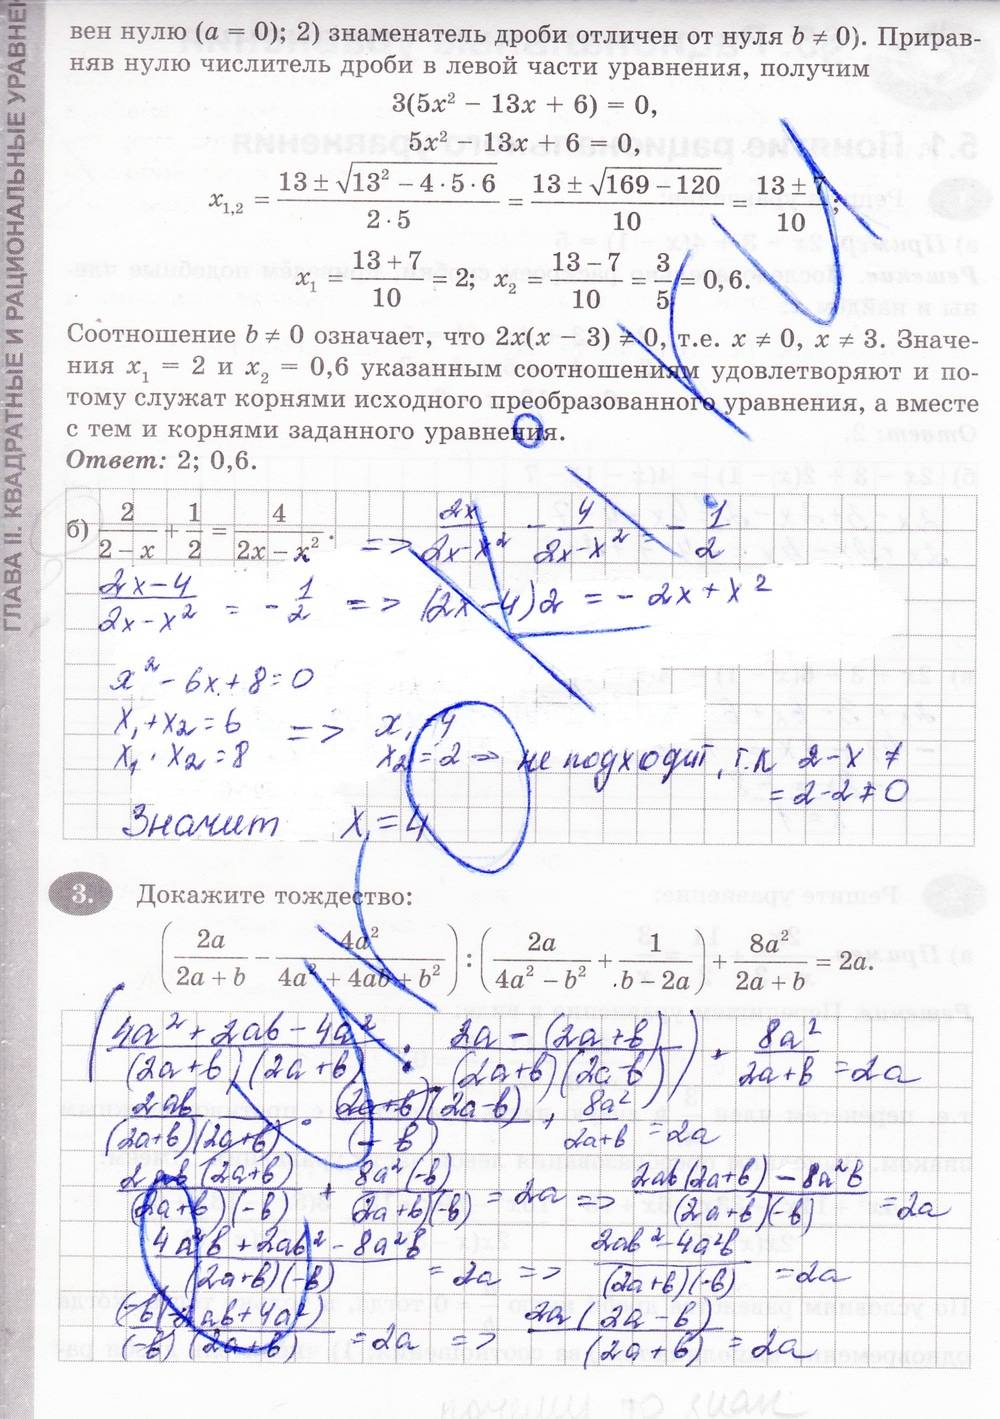 ГЛАВА II. КВАДРАТНЫЕ И РАЦИОНАЛЬНЫЕ УРАВНЕН
вен нулю (a = 0); 2) знаменатель дроби отличен от нуля b ≠ 0). Прирав-
няв нулю числитель дроби в левой части уравнения, получим
3(5x² − 13x + 6) = 0,
5x² − 13x + 6 = 0,
x₁,₂ = (13 ± √(13² − 4 · 5 · 6))/(2 · 5) = (13 ± √(169 − 120))/10 = (13 ± 7)/10;
x₁ = (13 + 7)/10 = 2; x₂ = (13 − 7)/10 = 3/5 = 0,6.
Соотношение b ≠ 0 означает, что 2x(x − 3) ≠ 0, т.е. x ≠ 0, x ≠ 3. Значе-
ния x₁ = 2 и x₂ = 0,6 указанным соотношениям удовлетворяют и по-
тому служат корнями исходного преобразованного уравнения, а вместе
с тем и корнями заданного уравнения.
Ответ: 2; 0,6.
б) 2/(2 − x) + 1/2 = 4/(2x − x²). => 2x/(2x−x²) − 4/(2x−x²) = − 1/2
(2x−4)/(2x−x²) = − 1/2 => (2x−4)2 = − 2x + x²
x² − 6x + 8 = 0
x₁ + x₂ = 6 => x₁ = 4
x₁ · x₂ = 8 x₂ = 2 => не подходит, т.к 2−x ≠
= 2−2 ≠ 0
Значит x = 4
3. Докажите тождество:
(2a/(2a + b) − 4a²/(4a² + 4ab + b²)) : (2a/(4a² − b²) + 1/(b − 2a)) + 8a²/(2a + b) = 2a.
((4a² + 2ab − 4a²)/((2a+b)(2a+b)) : (2a − (2a+b))/((2a+b)(2a−b))) + 8a²/(2a+b) = 2a
2ab/((2a+b)(2a+b)) · (2a+b)(2a−b)/(−b) + 8a²/(2a+b) = 2a
2ab(2a+b)/((2a+b)(−b)) + 8a²(−b)/((2a+b)(−b)) = 2a => (2ab(2a+b) − 8a²b)/((2a+b)(−b)) = 2a
(4a²b + 2ab² − 8a²b)/((2a+b)(−b)) = 2a => (2ab² − 4a²b)/((2a+b)(−b)) = 2a
(−b)(−2ab + 4a²)/((−b)(2a+b)) = 2a => 2a(2a−b)/(2a+b) = 2a